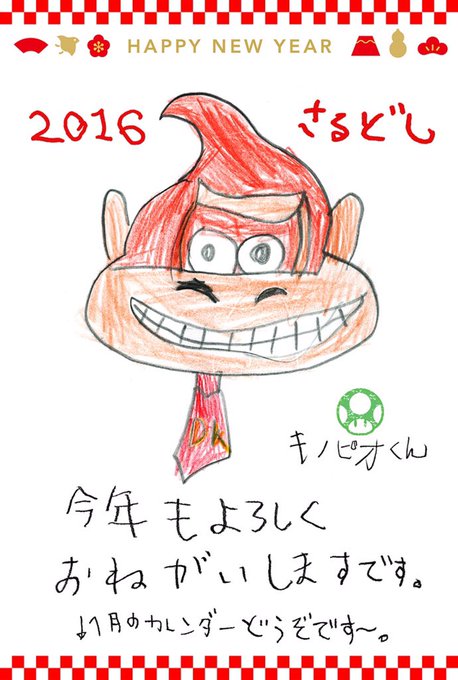 HAPPY NEW YEAR
2016 さるどし
DK
キノピオくん
今年もよろしく
おねがいしますです。
↓1月のカレンダーどうぞです〜。